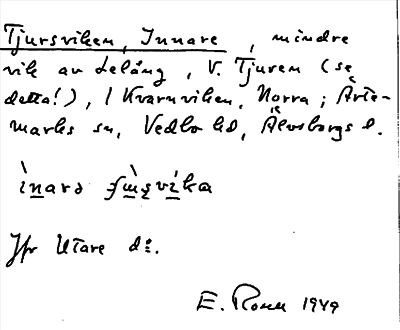 Tjursviken, Innare, mindre
vik av Lelång, V. Tjuren (se
detta!), i Kvarnviken, Norra; Årte-
marks sn, Vedbo hd, Älvsborgs l.
Jfr Utare d:o.
E. Rosell 1949